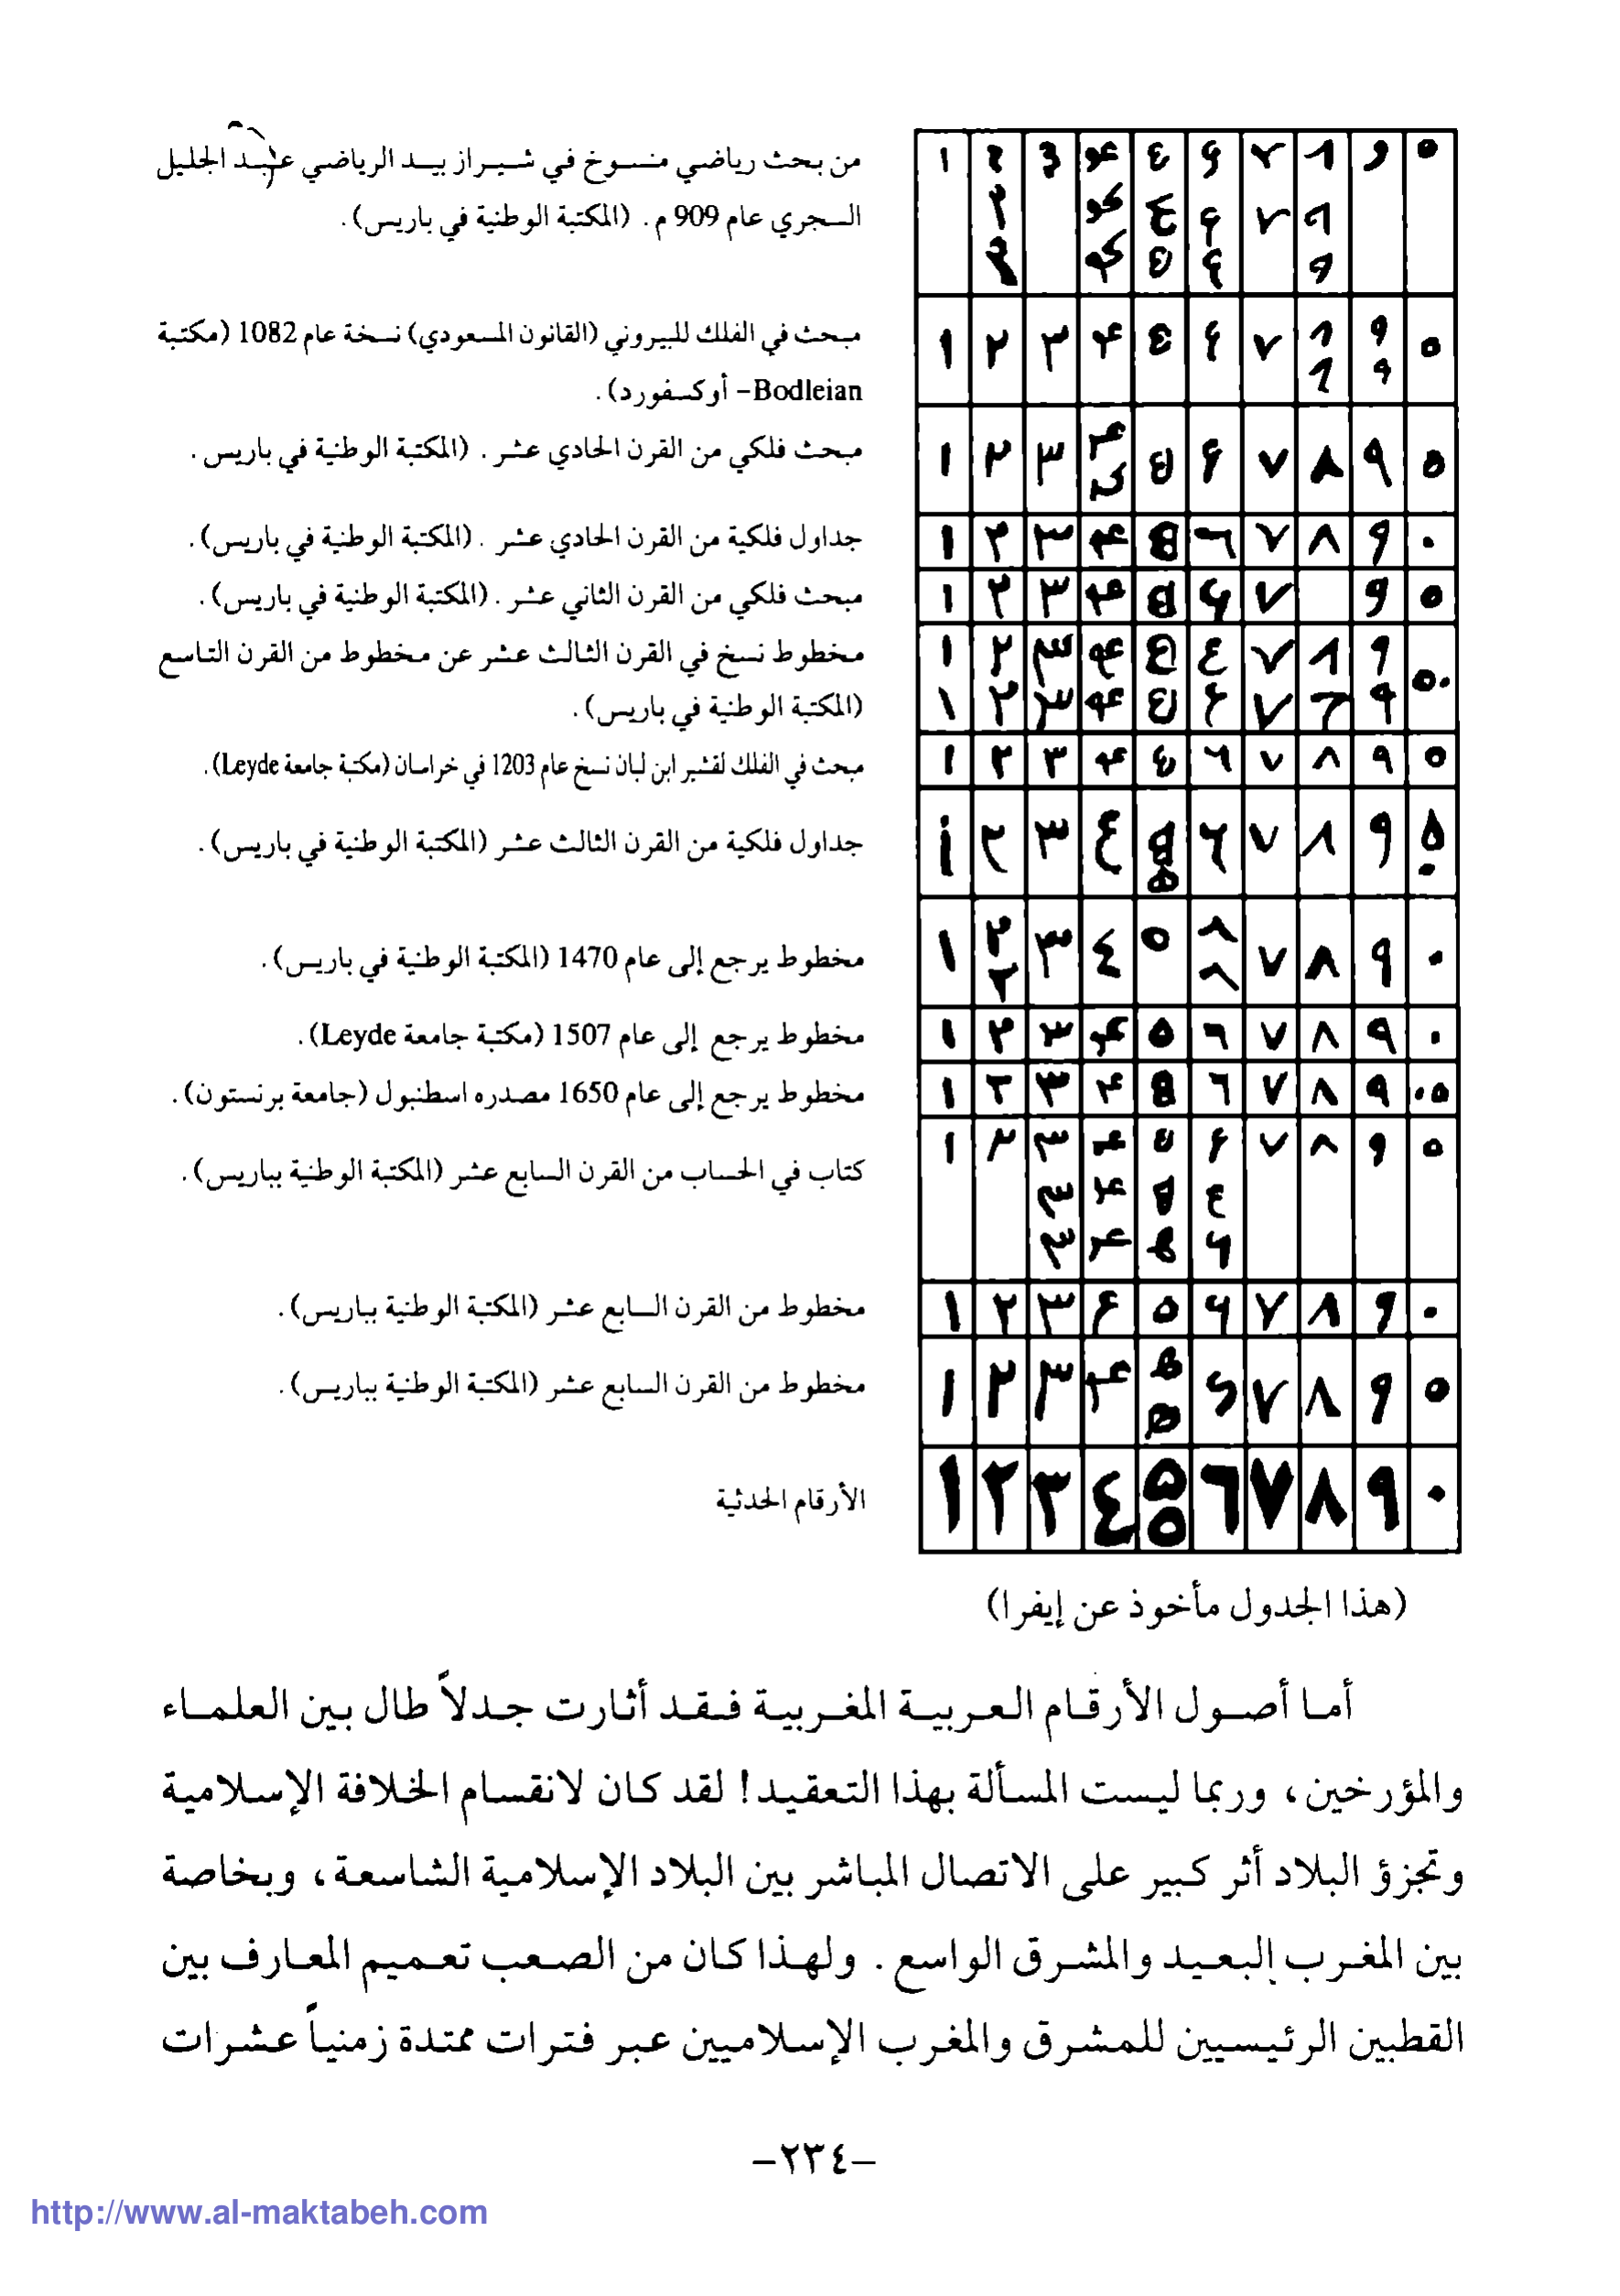 من بحث رياضي منسوخ في شيراز بيد الرياضي عبد الجليل
السجري عام 909 م. (المكتبة الوطنية في باريس).
مبحث في الفلك للبيروني (القانون المسعودي) نسخة عام 1082 (مكتبة
Bodleian- أوكسفورد).
مبحث فلكي من القرن الحادي عشر. (المكتبة الوطنية في باريس.
جداول فلكية من القرن الحادي عشر. (المكتبة الوطنية في باريس).
مبحث فلكي من القرن الثاني عشر. (المكتبة الوطنية في باريس).
مخطوط نسخ في القرن الثالث عشر عن مخطوط من القرن التاسع
(المكتبة الوطنية في باريس).
مبحث في الفلك لقشير ابن لبان نسخ عام 1203 في خراسان (مكتبة جامعة Leyde).
جداول فلكية من القرن الثالث عشر (المكتبة الوطنية في باريس).
مخطوط يرجع إلى عام 1470 (المكتبة الوطنية في باريس).
مخطوط يرجع إلى عام 1507 (مكتبة جامعة Leyde).
مخطوط يرجع إلى عام 1650 مصدره اسطنبول (جامعة برنستون).
كتاب في الحساب من القرن السابع عشر (المكتبة الوطنية بباريس).
مخطوط من القرن السابع عشر (المكتبة الوطنية بباريس).
مخطوط من القرن السابع عشر (المكتبة الوطنية بباريس).
الأرقام الحدثية
١ ٢ ٣ ٤ ٥ ٦ ٧ ٨ ٩ ٠
(هذا الجدول مأخوذ عن إيفرا)
أما أصول الأرقام العربية المغربية فقد أثارت جدلاً طال بين العلماء
والمؤرخين، وربما ليست المسألة بهذا التعقيد! لقد كان لانقسام الخلافة الإسلامية
وتجزؤ البلاد أثر كبير على الاتصال المباشر بين البلاد الإسلامية الشاسعة، وبخاصة
بين المغرب البعيد والمشرق الواسع. ولهذا كان من الصعب تعميم المعارف بين
القطبين الرئيسيين للمشرق والمغرب الإسلاميين عبر فترات ممتدة زمنياً عشرات
-٢٣٤-
http://www.al-maktabeh.com